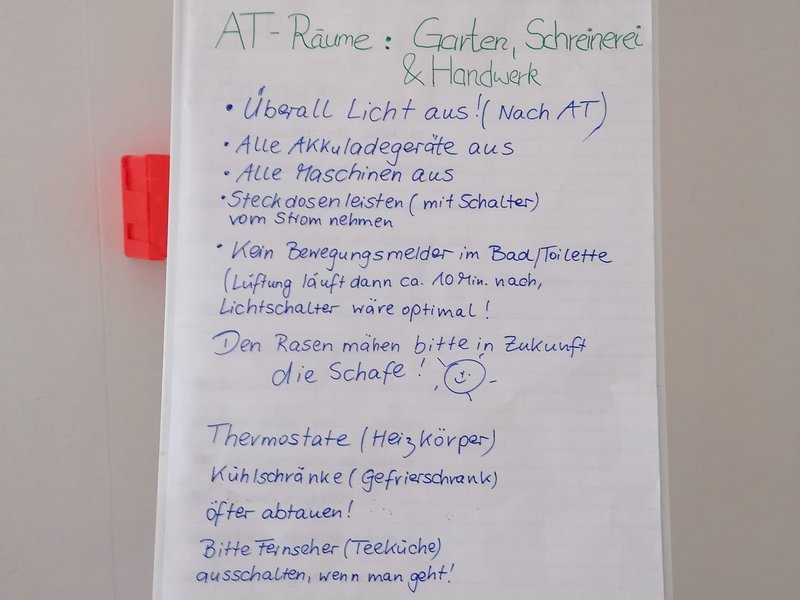 AT-Räume: Garten, Schreinerei
& Handwerk
• Überall Licht aus! (Nach AT)
• Alle Akkuladegeräte aus
• Alle Maschinen aus
• Steckdosenleisten (mit Schalter)
vom Strom nehmen
• Kein Bewegungsmelder im Bad/Toilette
(Lüftung läuft dann ca. 10 Min. nach,
Lichtschalter wäre optimal!
Den Rasen mähen bitte in Zukunft
die Schafe!
Thermostate (Heizkörper)
Kühlschränke (Gefrierschrank)
öfter abtauen!
Bitte Fernseher (Teeküche)
ausschalten, wenn man geht!